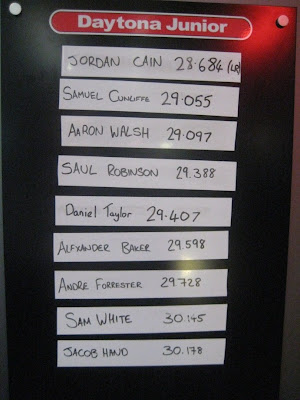 Daytona Junior
JORDAN CAIN 28.684 (LR)
SAMUEL CUNLIFFE 29.055
AARON WALSH 29.097
SAUL ROBINSON 29.388
Daniel Taylor 29.407
ALEXANDER BAKER 29.598
ANDRE FORRESTER 29.728
SAM WHITE 30.145
JACOB HAND 30.178